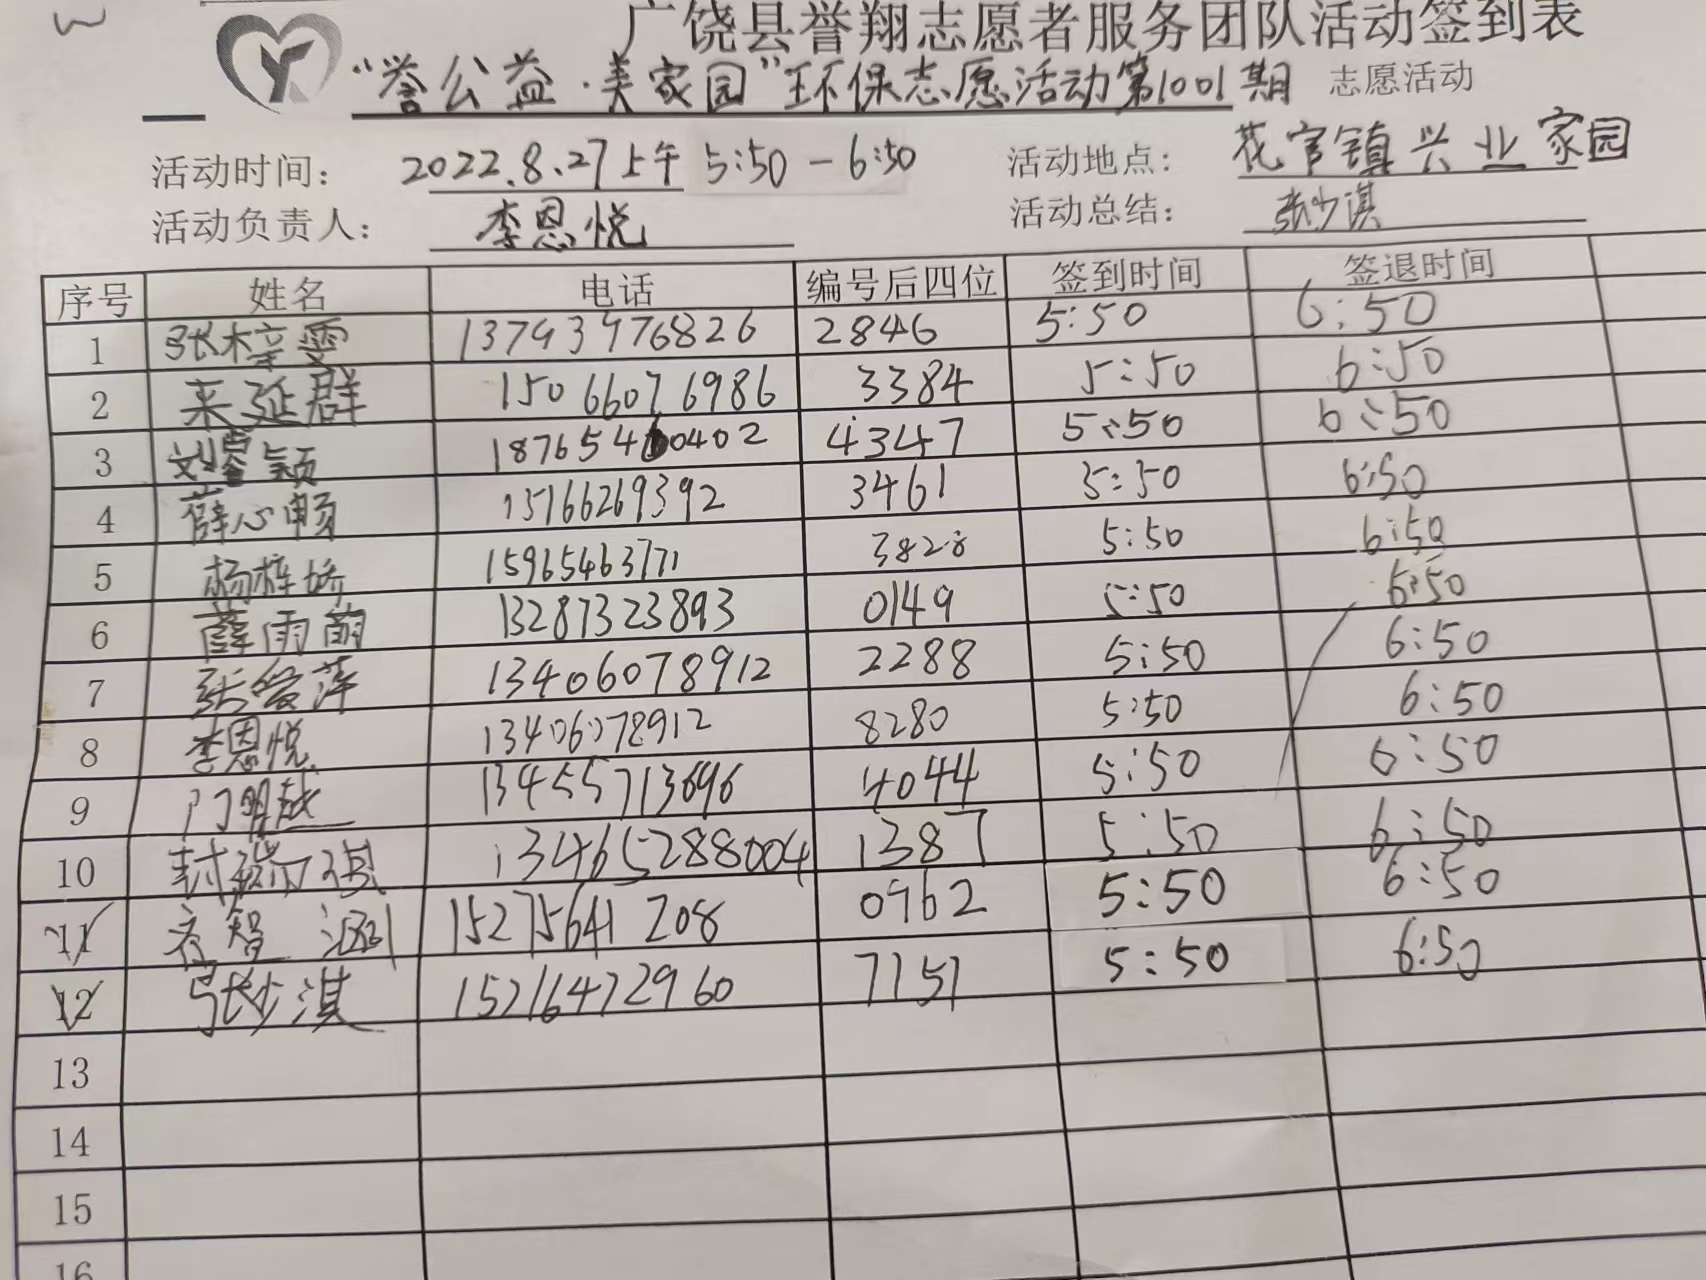 广饶县誉翔志愿者服务团队活动签到表
“誉公益·美家园”环保志愿活动第1001期 志愿活动
活动时间: 2022.8.27上午 5:50-6:50 活动地点: 花官镇兴业家园
活动负责人: 李恩悦 活动总结: 张少淇
序号 姓名 电话 编号后四位 签到时间 签退时间
1 张梓雯 13793976826 2846 5:50 6:50
2 来延群 15066076986 3384 5:50 6:50
3 刘睿颖 18765460402 4347 5:50 6:50
4 薛心畅 15166269392 3461 5:50 6:50
5 杨梓娇 15965463771 3828 5:50 6:50
6 薛雨萌 13287323893 0149 5:50 6:50
7 张爱萍 13406078912 2288 5:50 6:50
8 李恩悦 13406078912 8280 5:50 6:50
9 门明越 13455713696 4044 5:50 6:50
10 封瑞琪 13465288004 1387 5:50 6:50
11 智渊 15275641208 0962 5:50 6:50
12 张少淇 15216472960 7151 5:50 6:50
13
14
15
16